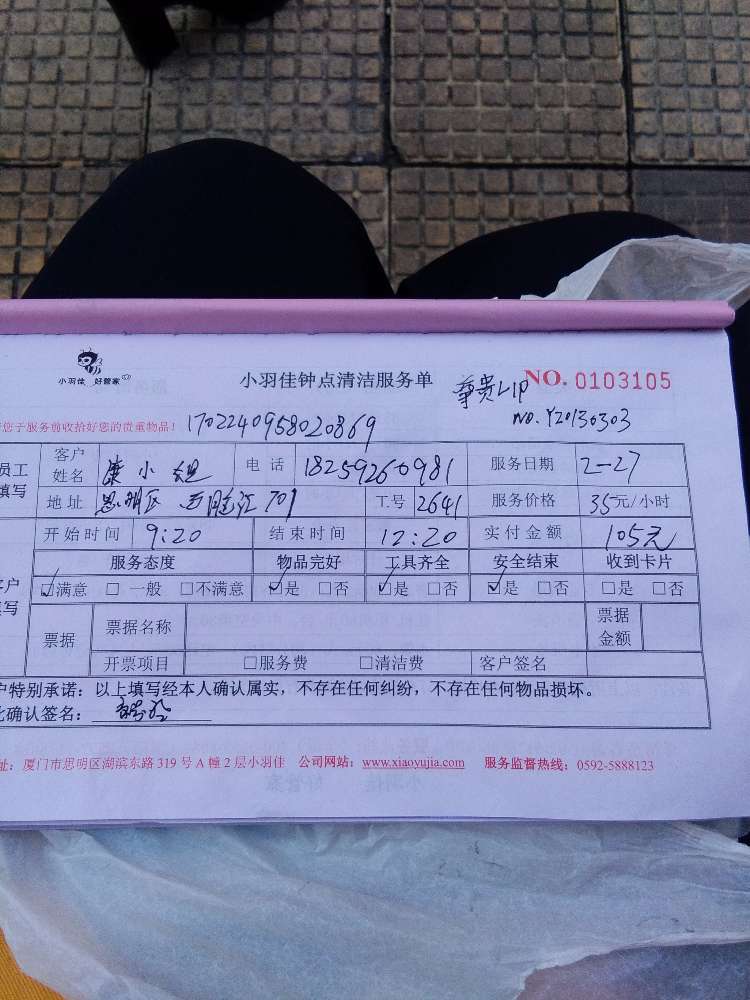 小羽佳 好管家
小羽佳钟点清洁服务单 尊贵VIP NO. 0103105
您于服务前收拾好您的贵重物品！ 1702240958020869 NO. YZ0130303
员工填写 客户姓名 康小姐 电话 18259260981 服务日期 2-27
地址 思明区 701 工号 2641 服务价格 35元/小时
开始时间 9:20 结束时间 12:20 实付金额 105元
服务态度 物品完好 工具齐全 安全结束 收到卡片
客户填写 ☑满意 □一般 □不满意 ☑是 □否 ☑是 □否 ☑是 □否 □是 □否
票据 票据名称 票据金额
开票项目 □服务费 □清洁费 客户签名
户特别承诺：以上填写经本人确认属实，不存在任何纠纷，不存在任何物品损坏。
此确认签名：
址：厦门市思明区湖滨东路 319 号 A 幢 2 层小羽佳 公司网站：www.xiaoyujia.com 服务监督热线：0592-5888123